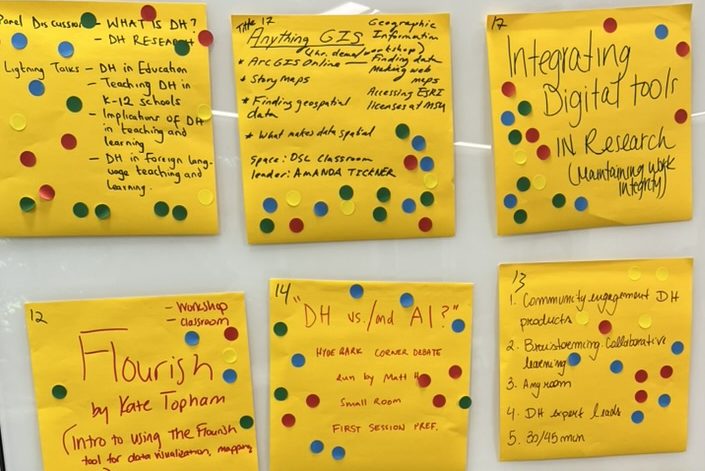 Panel Discussion - WHAT IS DH?
- DH RESEARCH
Lightning Talks - DH in Education
- Teaching DH in
K-12 schools
- Implications of DH
in teaching and
learning
- DH in Foreign lang-
uage teaching and
learning.
Title 17
Anything GIS
Geographic
Information
(1hr. demo/workshop)
* ArcGIS Online
Finding data
Making web
maps
* Story maps
Accessing ESRI
licenses at MSU
* Finding geospatial
data
* What makes data spatial
Space: DSL Classroom
leader: AMANDA TICKNER
17
Integrating
Digital tools
IN Research
(Maintaining work
integrity)
12
- Workshop
- Classroom
Flourish
by Kate Topham
(Intro to using the Flourish
tool for data visualization, mapping
14
"DH vs./and AI?"
HYDE PARK CORNER DEBATE
Run by Matt H
Small Room
FIRST SESSION PREF.
13
1. Community engagement DH
products
2. Brainstorming. Collaborative
learning
3. Any room
4. DH expert leads
5. 30/45 mun